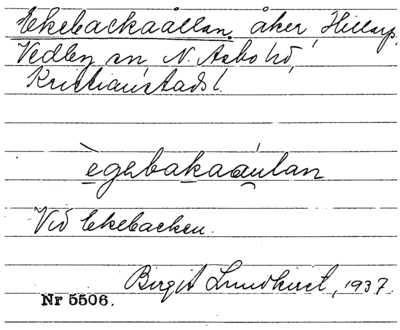 Ekebackaållan, åker, Hillarp,
Vedby sn N. Åsbo hd,
Kristianstads l.
ègebakaáulan
Vid Ekebacken.
Birgit Lundkvist, 1937.
Nr 5506.